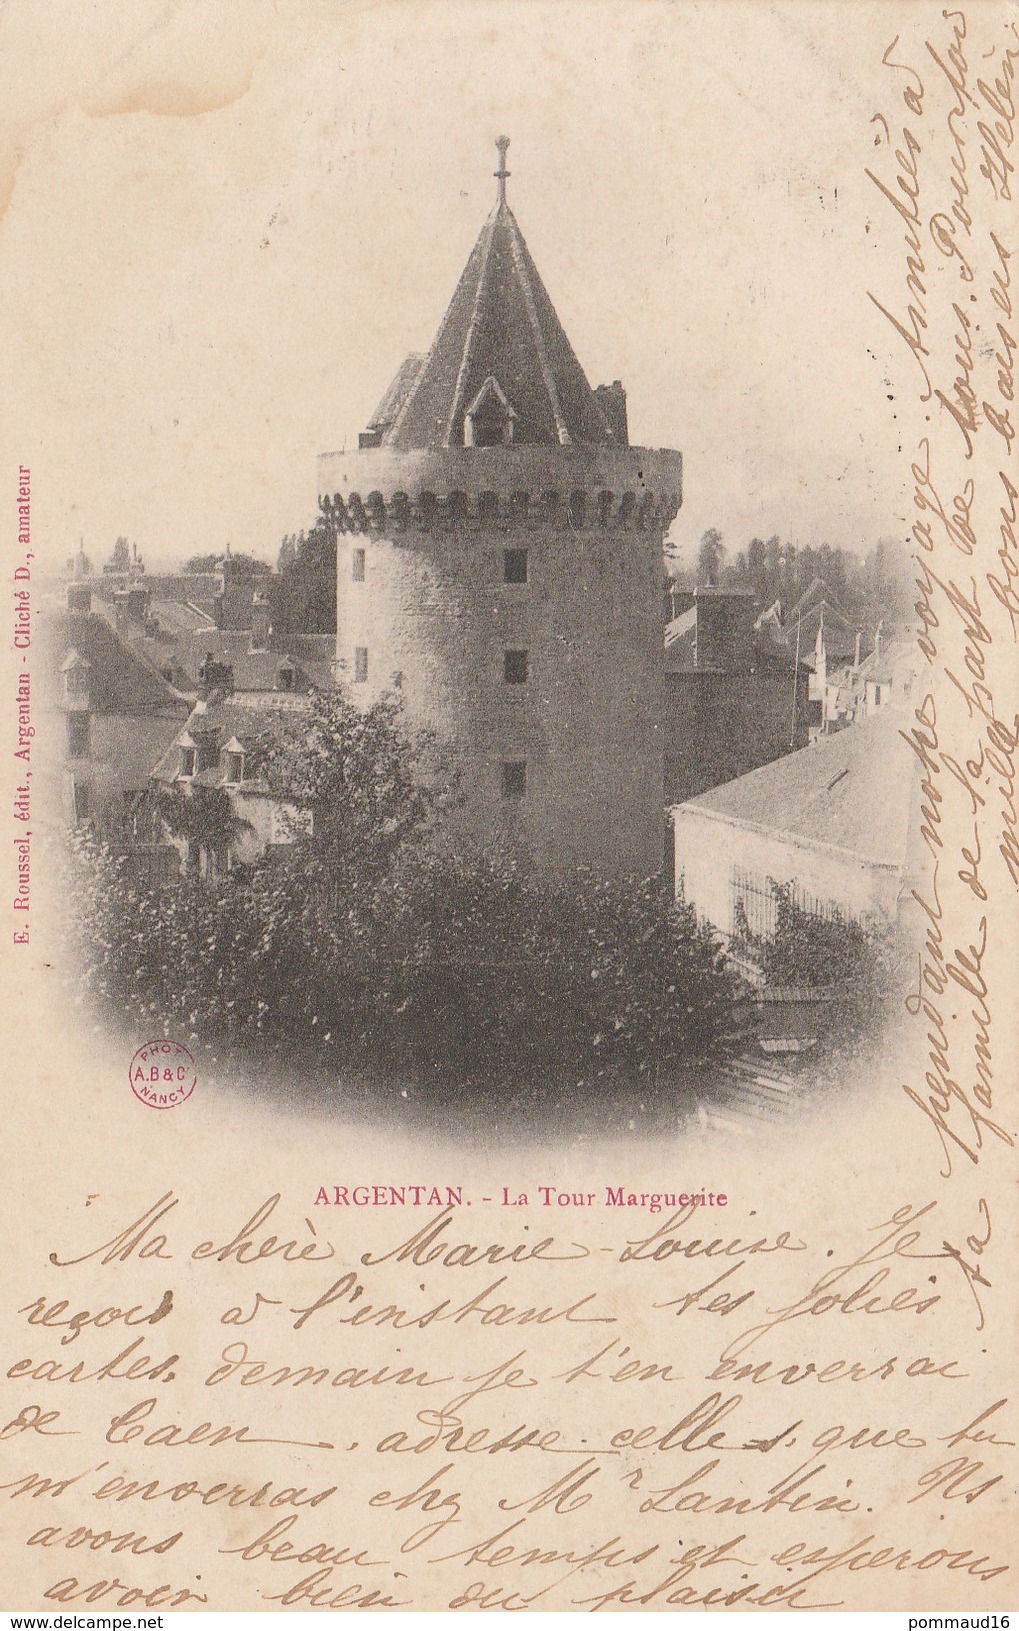 E. Roussel, édit., Argentan - Cliché D., amateur
PHOT
A.B & Cᵒ
NANCY
ARGENTAN. - La Tour Marguerite
Ma chère Marie-Louise. Je
reçois à l'instant tes jolies
cartes. demain je t'en enverrai
de Caen. adresse celles que tu
m'enverras chez Mʳ Lantin. Ns
avons beau temps et espérons
avoir bien du plaisir
pendant notre voyage. Amitiés à
ta famille de la part de tous. Pour toi
mille bons baisers Hélène
www.delcampe.net
pommaud16